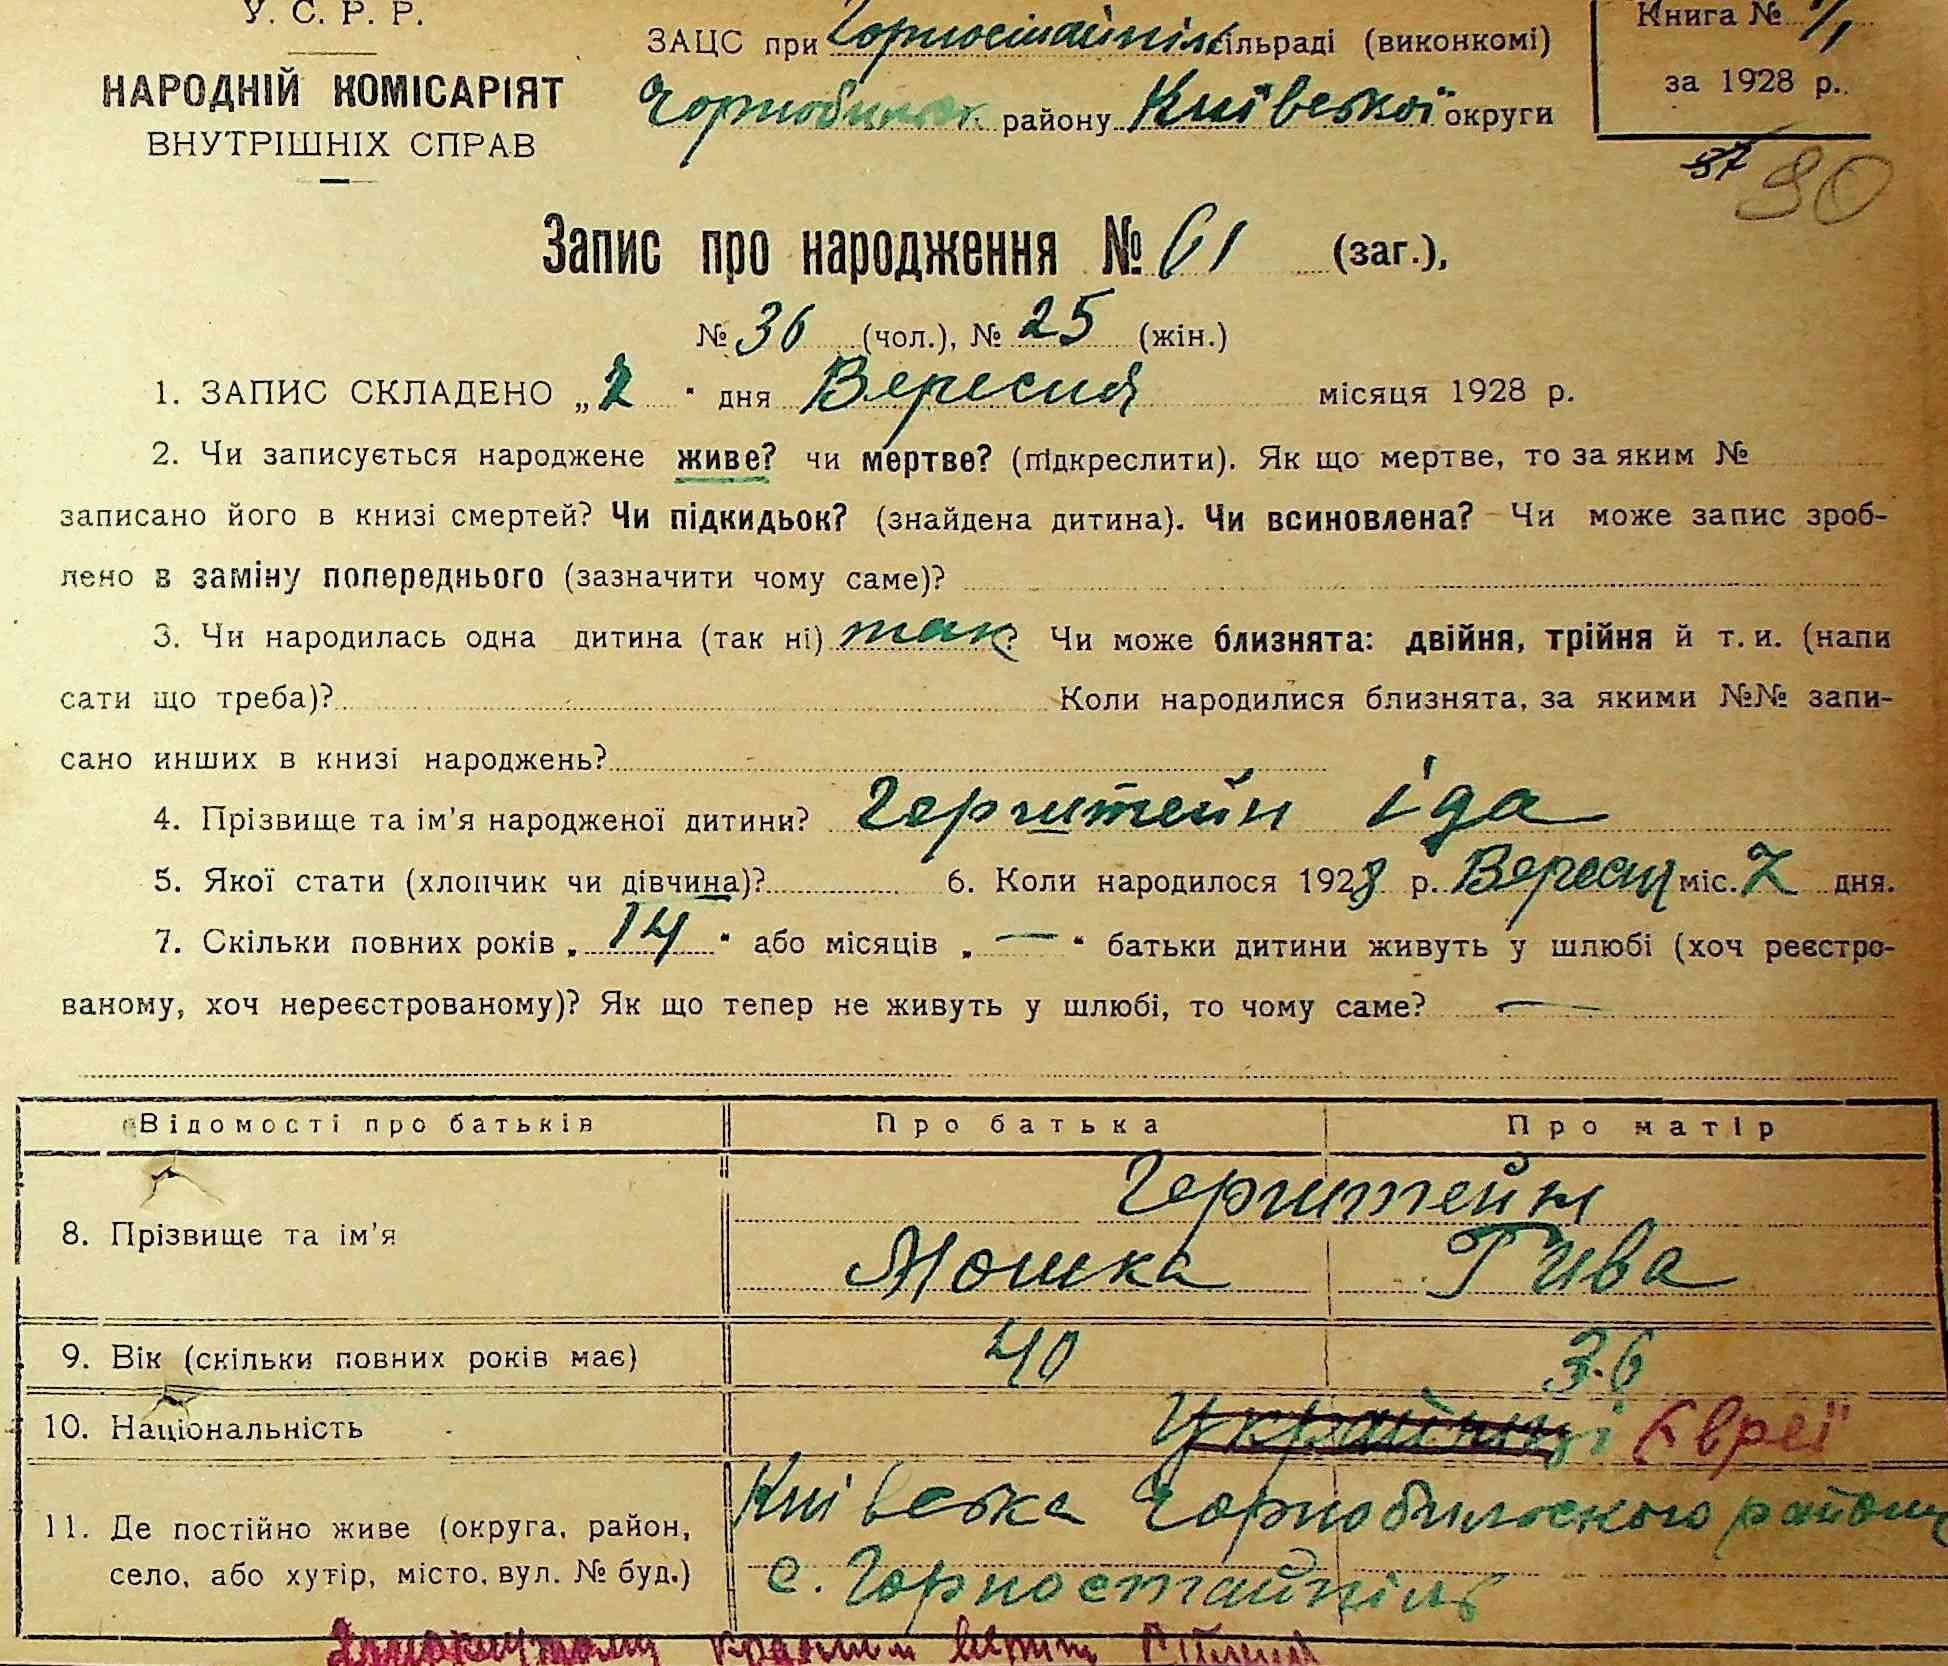 У. С. Р. Р.
НАРОДНІЙ КОМІСАРІЯТ
ВНУТРІШНІХ СПРАВ
ЗАЦС при Горностайпіль сільраді (виконкомі)
району Київської округи
Книга №
за 1928 р.
37 90
Запис про народження № 61 (заг.),
№ 36 (чол.), № 25 (жін.)
1. ЗАПИС СКЛАДЕНО „ " дня Вересня місяця 1928 р.
2. Чи записується народжене живе? чи мертве? (підкреслити). Як що мертве, то за яким №
записано його в книзі смертей? Чи підкидьок? (знайдена дитина). Чи всиновлена? Чи може запис зроб-
лено в заміну попереднього (зазначити чому саме)?
3. Чи народилась одна дитина (так ні) так? Чи може близнята: двійня, трійня й т. и. (напи
сати що треба)? Коли народилися близнята, за якими №№ запи-
сано инших в книзі народжень?
4. Прізвище та ім'я народженої дитини? Герштейн Іда
5. Якої стати (хлопчик чи дівчина)? 6. Коли народилося 1928 р. Вересня міс. 7 дня.
7. Скільки повних років „ 14 " або місяців „ — " батьки дитини живуть у шлюбі (хоч реєстро-
ваному, хоч нереєстрованому)? Як що тепер не живуть у шлюбі, то чому саме? —
Відомості про батьків Про батька Про матір
8. Прізвище та ім'я Герштейн
Мошка Гива
9. Вік (скільки повних років має) 40 36
10. Національність Українці Євреї
11. Де постійно живе (округа, район, село, або хутір, місто, вул. № буд.)
Київська Чорнобильского району
с. Горностайпіль